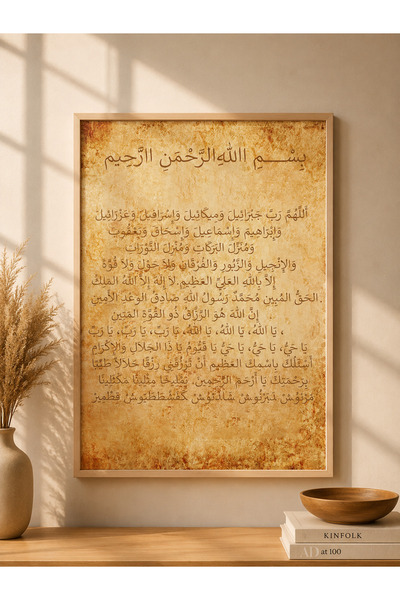 بِسْــمِ االلهِ الرَّحْمَنِ االرَّحِيم
اَللّٰهُمَّ رَبَّ جَبْرَائِيلَ وَمِيكَائِيلَ وَإِسْرَافِيلَ وَعَزْرَائِيلَ
وَإِبْرَاهِيمَ وَإِسْمَاعِيلَ وَإِسْحَاقَ وَيَعْقُوبَ
وَمُنَزِّلَ البَرَكَاتِ وَمُنْزِلَ التَّوْرَاتِ
وَالإِنْجِيلِ وَالزَّبُورِ وَالفُرْقَانِ وَلَا حَوْلَ وَلَا قُوَّةَ
إِلاَّ بِاللهِ العَلِيِّ العَظِيمِ. لَا إِلَهَ إِلاَّ اللهُ المَلِكُ
الحَقُّ المُبِينُ مُحَمَّدٌ رَسُولُ اللهِ صَادِقُ الوَعْدِ الأَمِينِ.
إِنَّ اللهَ هُوَ الرَّزَّاقُ ذُو القُوَّةِ المَتِينُ
يَا اللهُ، يَا اللهُ، يَا اللهُ، يَا رَبِّ، يَا رَبِّ، يَا رَبِّ ،
يَا حَيُّ، يَا حَيُّ، يَا حَيُّ يَا قَيُّومُ يَا ذَا الجَلَالِ وَالإِكْرَامِ
أَسْئَلُكَ بِاسْمِكَ العَظِيمِ أَنْ تَرْزُقَنِي رِزْقًا حَلَالاً طَيِّبًا
بِرَحْمَتِكَ يَا أَرْحَمَ الرَّاحِمِينَ. يَمْلِيخَا مَثْلِينَا مَكْثَلِينَا
مَرْنُوشْ دَبَرْنُوشْ شَاذَنُوشْ كَفَشْطَطَيُوشْ قِطْمِيرْ
KINFOLK
at 100